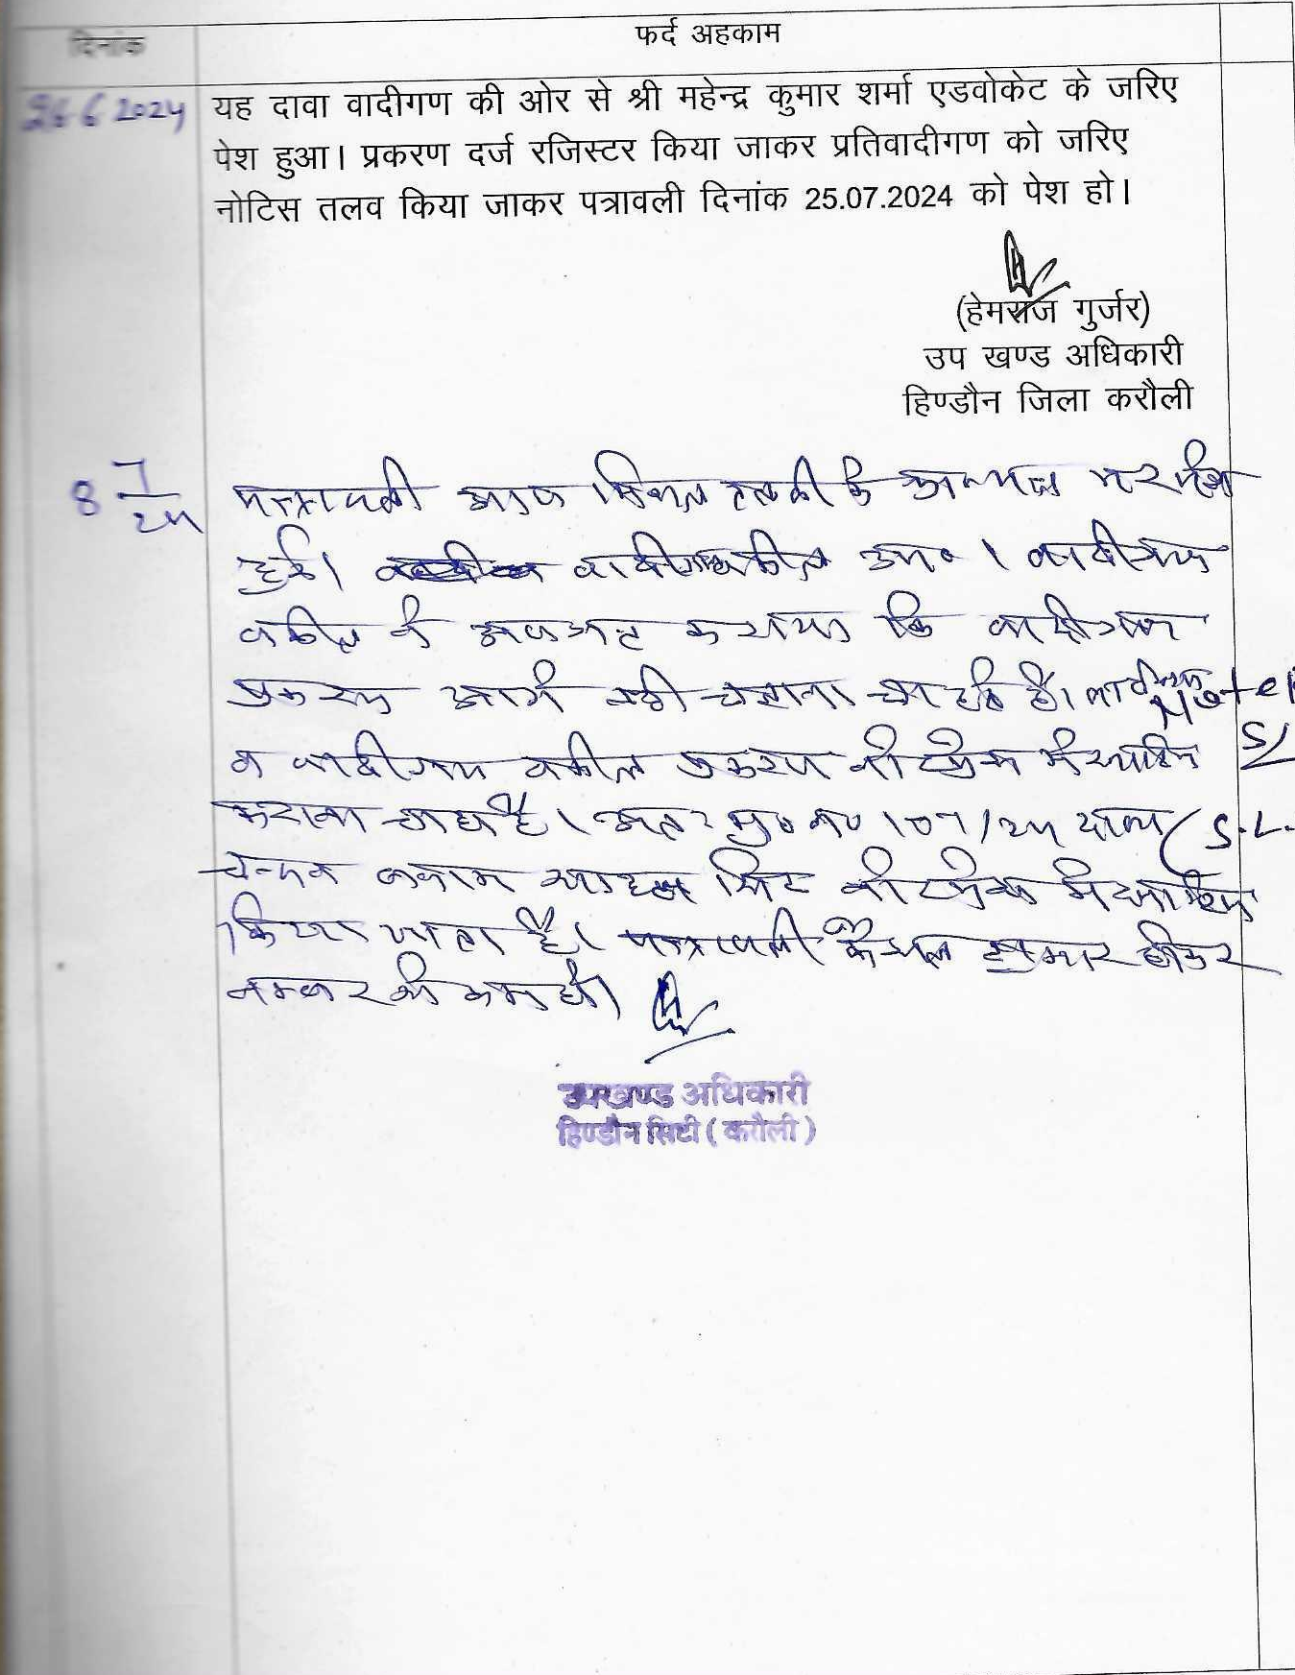 दिनांक
फर्द अहकाम
26 6 2024
यह दावा वादीगण की ओर से श्री महेन्द्र कुमार शर्मा एडवोकेट के जरिए
पेश हुआ। प्रकरण दर्ज रजिस्टर किया जाकर प्रतिवादीगण को जरिए
नोटिस तलव किया जाकर पत्रावली दिनांक 25.07.2024 को पेश हो।
(हेमराज गुर्जर)
उप खण्ड अधिकारी
हिण्डौन जिला करौली
8 7/24
पत्रावली आज के पर पेश
हुई। वादीगण वकील उप०। वादीगण
वकील ने अवगत कराया कि वादीगण
प्रकरण आगे नही चलाना चाहते है। वादीगण
व वादीगण वकील प्रकरण नोट प्रेस में खारिज
कराना चाहते है। अतः मु० न० 107/24
बनाम नोट प्रेस मे खारिज
किया जाता है। पत्रावली फैसल शुमार होकर
नम्बर से कम हो।
Noted
S/
(S.L.
उपखण्ड अधिकारी
हिण्डौन सिटी ( करौली )